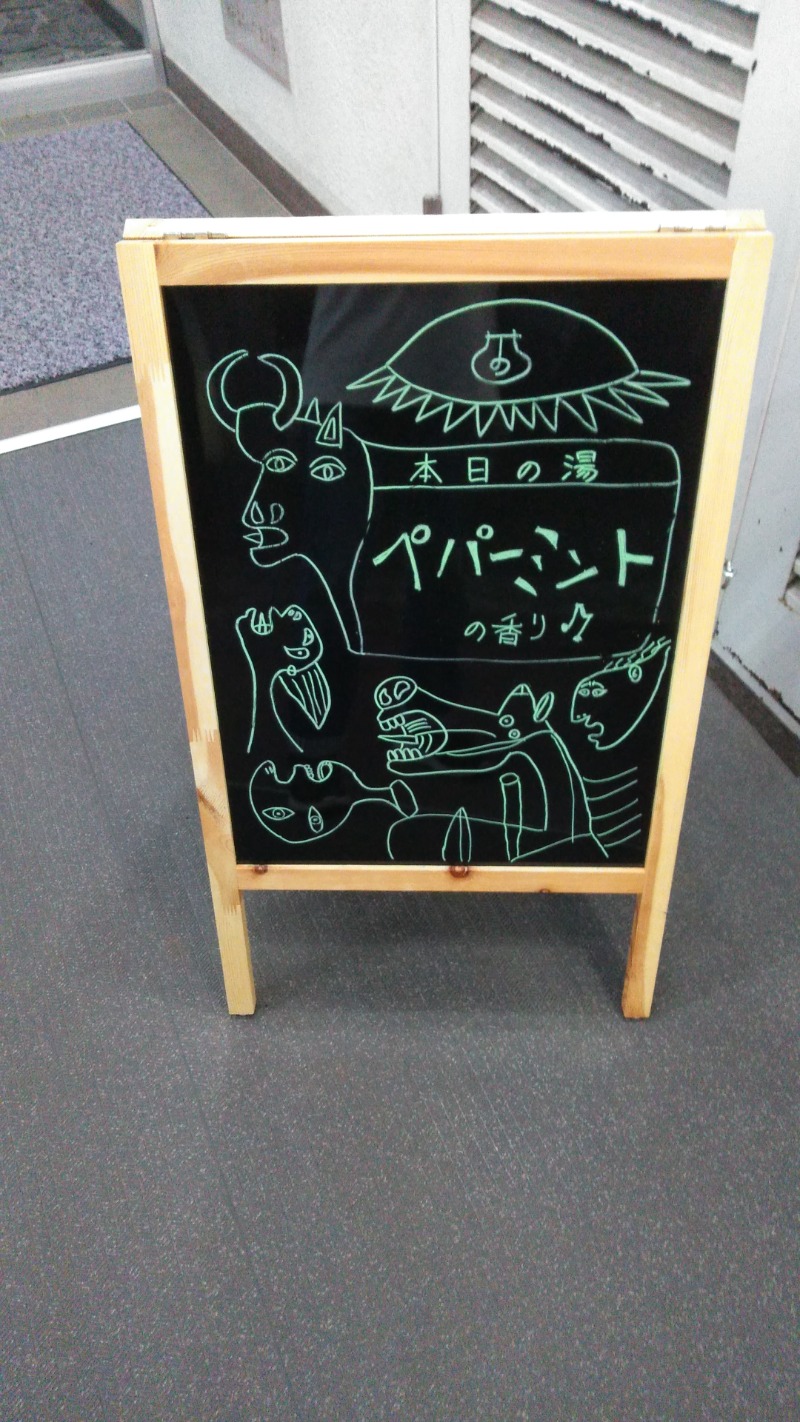 本日の湯
ペパーミント
の香り♪